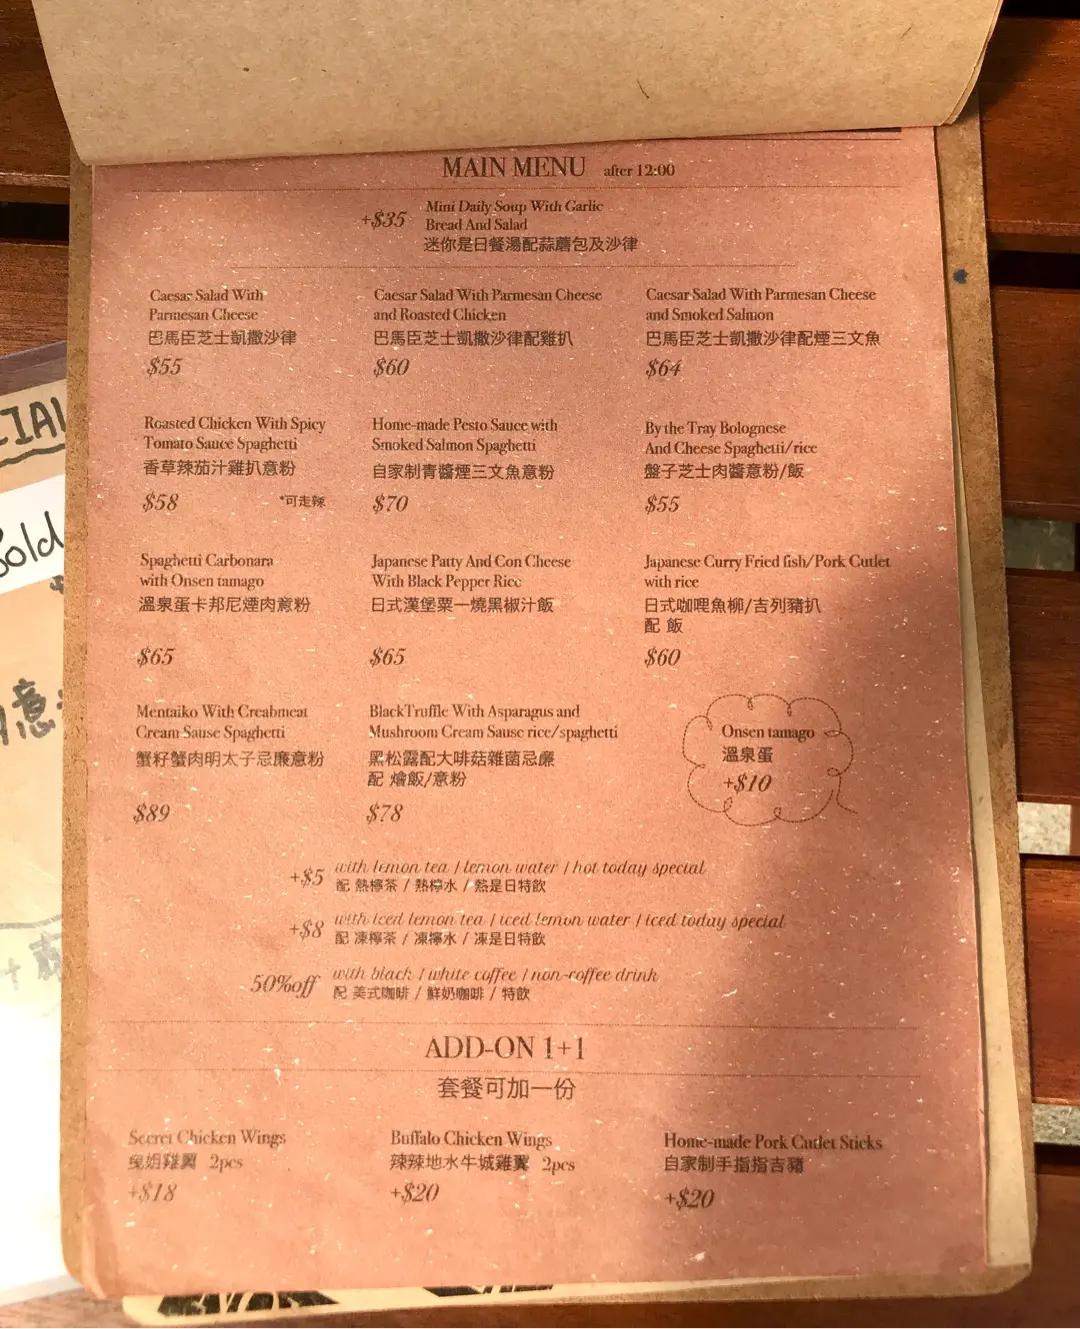 MAIN MENU after 12:00
+$35
Mini Daily Soup With Garlic
Bread And Salad
迷你是日餐湯配蒜蓉包及沙律
Caesar Salad With
Parmesan Cheese
巴馬臣芝士凱撒沙律
$55
Caesar Salad With Parmesan Cheese
and Roasted Chicken
巴馬臣芝士凱撒沙律配雞扒
$60
Caesar Salad With Parmesan Cheese
and Smoked Salmon
巴馬臣芝士凱撒沙律配煙三文魚
$64
Roasted Chicken With Spicy
Tomato Sauce Spaghetti
香草辣茄汁雞扒意粉
$58 *可走辣
Home-made Pesto Sauce with
Smoked Salmon Spaghetti
自家制青醬煙三文魚意粉
$70
By the Tray Bolognese
And Cheese Spaghetti/rice
盤子芝士肉醬意粉/飯
$55
Spaghetti Carbonara
with Onsen tamago
溫泉蛋卡邦尼煙肉意粉
$65
Japanese Patty And Con Cheese
With Black Pepper Rice
日式漢堡粟一燒黑椒汁飯
$65
Japanese Curry Fried fish/Pork Cutlet
with rice
日式咖哩魚柳/吉列豬扒
配 飯
$60
Mentaiko With Creabmeat
Cream Sause Spaghetti
蟹籽蟹肉明太子忌廉意粉
$89
BlackTruffle With Asparagus and
Mushroom Cream Sause rice/spaghetti
黑松露配大啡菇雜菌忌廉
配 燴飯/意粉
$78
Onsen tamago
溫泉蛋
+$10
+$5 with lemon tea / lemon water / hot today special
配 熱檸茶 / 熱檸水 / 熱是日特飲
+$8 with iced lemon tea / iced lemon water / iced today special
配 凍檸茶 / 凍檸水 / 凍是日特飲
50%off with black / white coffee / non-coffee drink
配 美式咖啡 / 鮮奶咖啡 / 特飲
ADD-ON 1+1
套餐可加一份
Secret Chicken Wings
兔姐雞翼 2pcs
+$18
Buffalo Chicken Wings
辣辣地水牛城雞翼 2pcs
+$20
Home-made Pork Cutlet Sticks
自家制手指指吉豬
+$20
CIAL
Sold
意